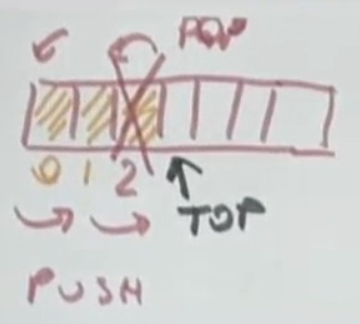 POP
0 1 2
TOP
PUSH